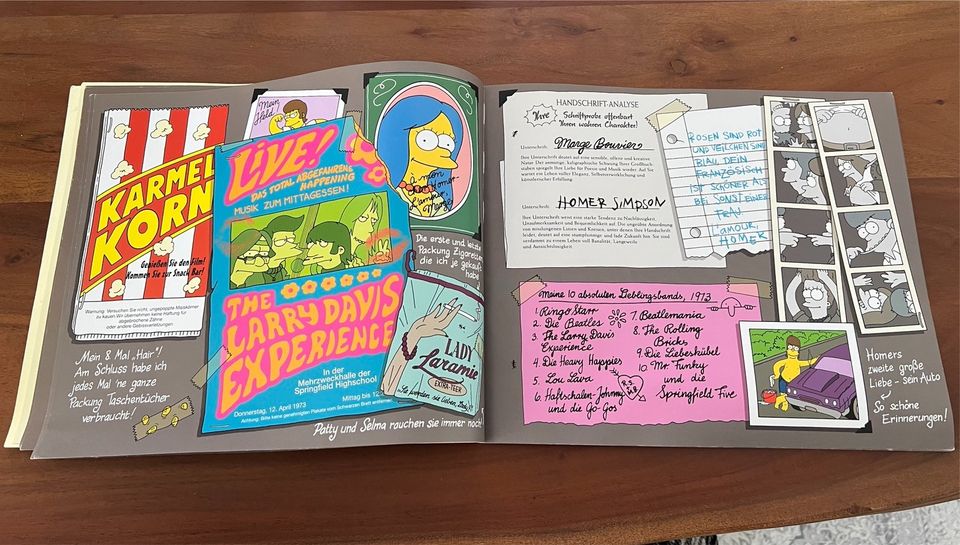 KARMEL
KORN
Genießen Sie den Film!
Kommen Sie zur Snack Bar!
Warnung: Versuchen Sie nicht, ungepoppte Maiskörner
zu kauen! Wir übernehmen keine Haftung für
abgebrochene Zähne
oder andere Gebissverletzungen
Mein 8 Mal „Hair"!
Am Schluss habe ich
jedes Mal 'ne ganze
Packung Taschentücher
verbraucht!
Mein
Held
LIVE!
DAS TOTAL ABGEFAHRENE
HAPPENING
MUSIK ZUM MITTAGESSEN!
THE
LARRY DAVIS
EXPERIENCE
In der
Mehrzweckhalle der
Springfield Highschool
Donnerstag, 12. April 1973
Mittag bis 12
Achtung: Bitte keine genehmigten Plakate vom Schwarzen Brett entfernen
Die erste und letzte
Packung Zigaretten
die ich je gekauft
habe
LADY
Laramie
EXTRA-TEER
Patty und Selma rauchen sie immer noch!
HANDSCHRIFT-ANALYSE
Ihre
Schriftprobe offenbart
Ihren wahren Charakter!
Unterschrift: Marge Bouvier
Ihre Unterschrift deutet auf eine sensible, offene und kreative
Natur. Der anmutige, kaligraphische Schwung Ihrer Großbuch-
staben spiegelt Ihre Liebe für Poesie und Musik wieder. Auf Sie
wartet ein Leben voller Eleganz, Selbstverwirklichung und
künstlerischer Erfüllung.
Unterschrift: HOMER SIMPSON
Ihre Unterschrift weist eine starke Tendenz zu Nachlässigkeit,
Unaufmerksamkeit und Bequemlichkeit auf. Die ungeübte Anordnung
von misslungenen Linien und Kreisen, unter denen Ihre Handschrift
leidet, deutet auf eine stumpfsinnige und fade Zukunft hin. Sie sind
verdammt zu einem Leben voll Banalität, Langeweile
und Aussichtslosigkeit.
ROSEN SIND ROT
UND VEILCHEN SIND
BLAU, DEIN
FRANZÖSISCH
IST SCHÖNER ALS
BEI SONST EINER
FRAU
L'AMOUR,
HOMER
Meine 10 absoluten Lieblingsbands, 1973
1. Ringo Starr
2. Die Beatles
3. The Larry Davis
Experience
4. Die Heavy Happies
5. Lou Lava
6. Haftschalen-Johnny
und die Go-Gos
7. Beatlemania
8. The Rolling
Bricks
9. Die Liebeskübel
10. Mr. Funky
und die
Springfield Five
Homers
zweite große
Liebe – sein Auto
So schöne
Erinnerungen!